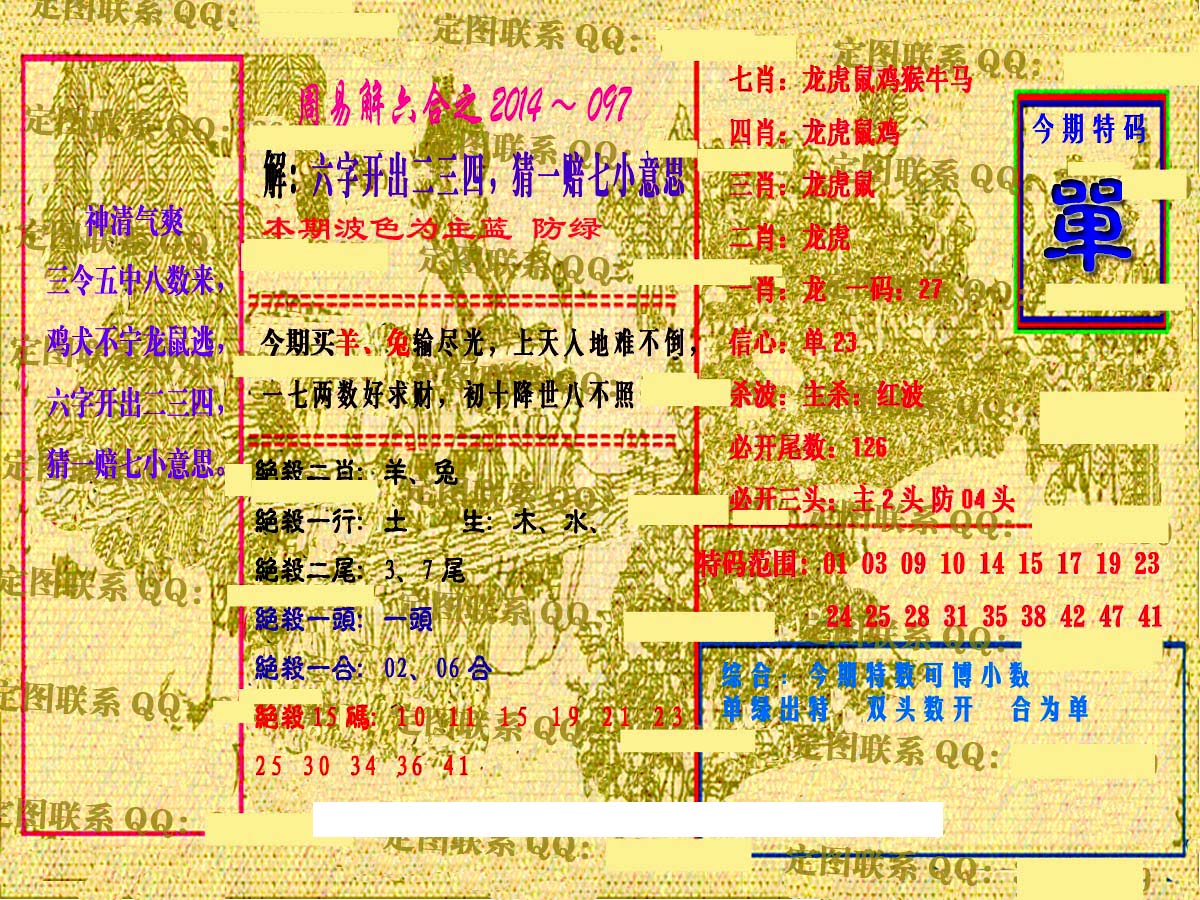 周易解六合之2014～097
解：六字开出二三四，猜一赔七小意思
本期波色为主蓝 防绿
神清气爽
三令五中八数来，
鸡犬不宁龙鼠逃，
六字开出二三四，
猜一赔七小意思。
今期买羊、兔输尽光，上天人地难不倒，
一七两数好求财，初十降世八不照
絕殺二肖：羊、兔
絕殺一行：土 生：木、水、
絕殺二尾：3、7尾
絕殺一頭：一頭
絕殺一合：02、06合
絕殺15碼：10 11 15 19 21 23
25 30 34 36 41
七肖：龙虎鼠鸡猴牛马
四肖：龙虎鼠鸡
三肖：龙虎鼠
二肖：龙虎
一肖：龙 一码：27
信心：单23
杀波：主杀：红波
必开尾数：126
必开三头：主2头防04头
今期特码
單
特码范围：01 03 09 10 14 15 17 19 23
24 25 28 31 35 38 42 47 41
综合：今期特数可博小数
单绿出特 双头数开 合为单
定图联系QQ：
定图联系QQ：
定图联系QQ：
定图联系QQ：
定图联系QQ：
定图联系QQ：
定图联系QQ：
定图联系QQ：
定图联系QQ：